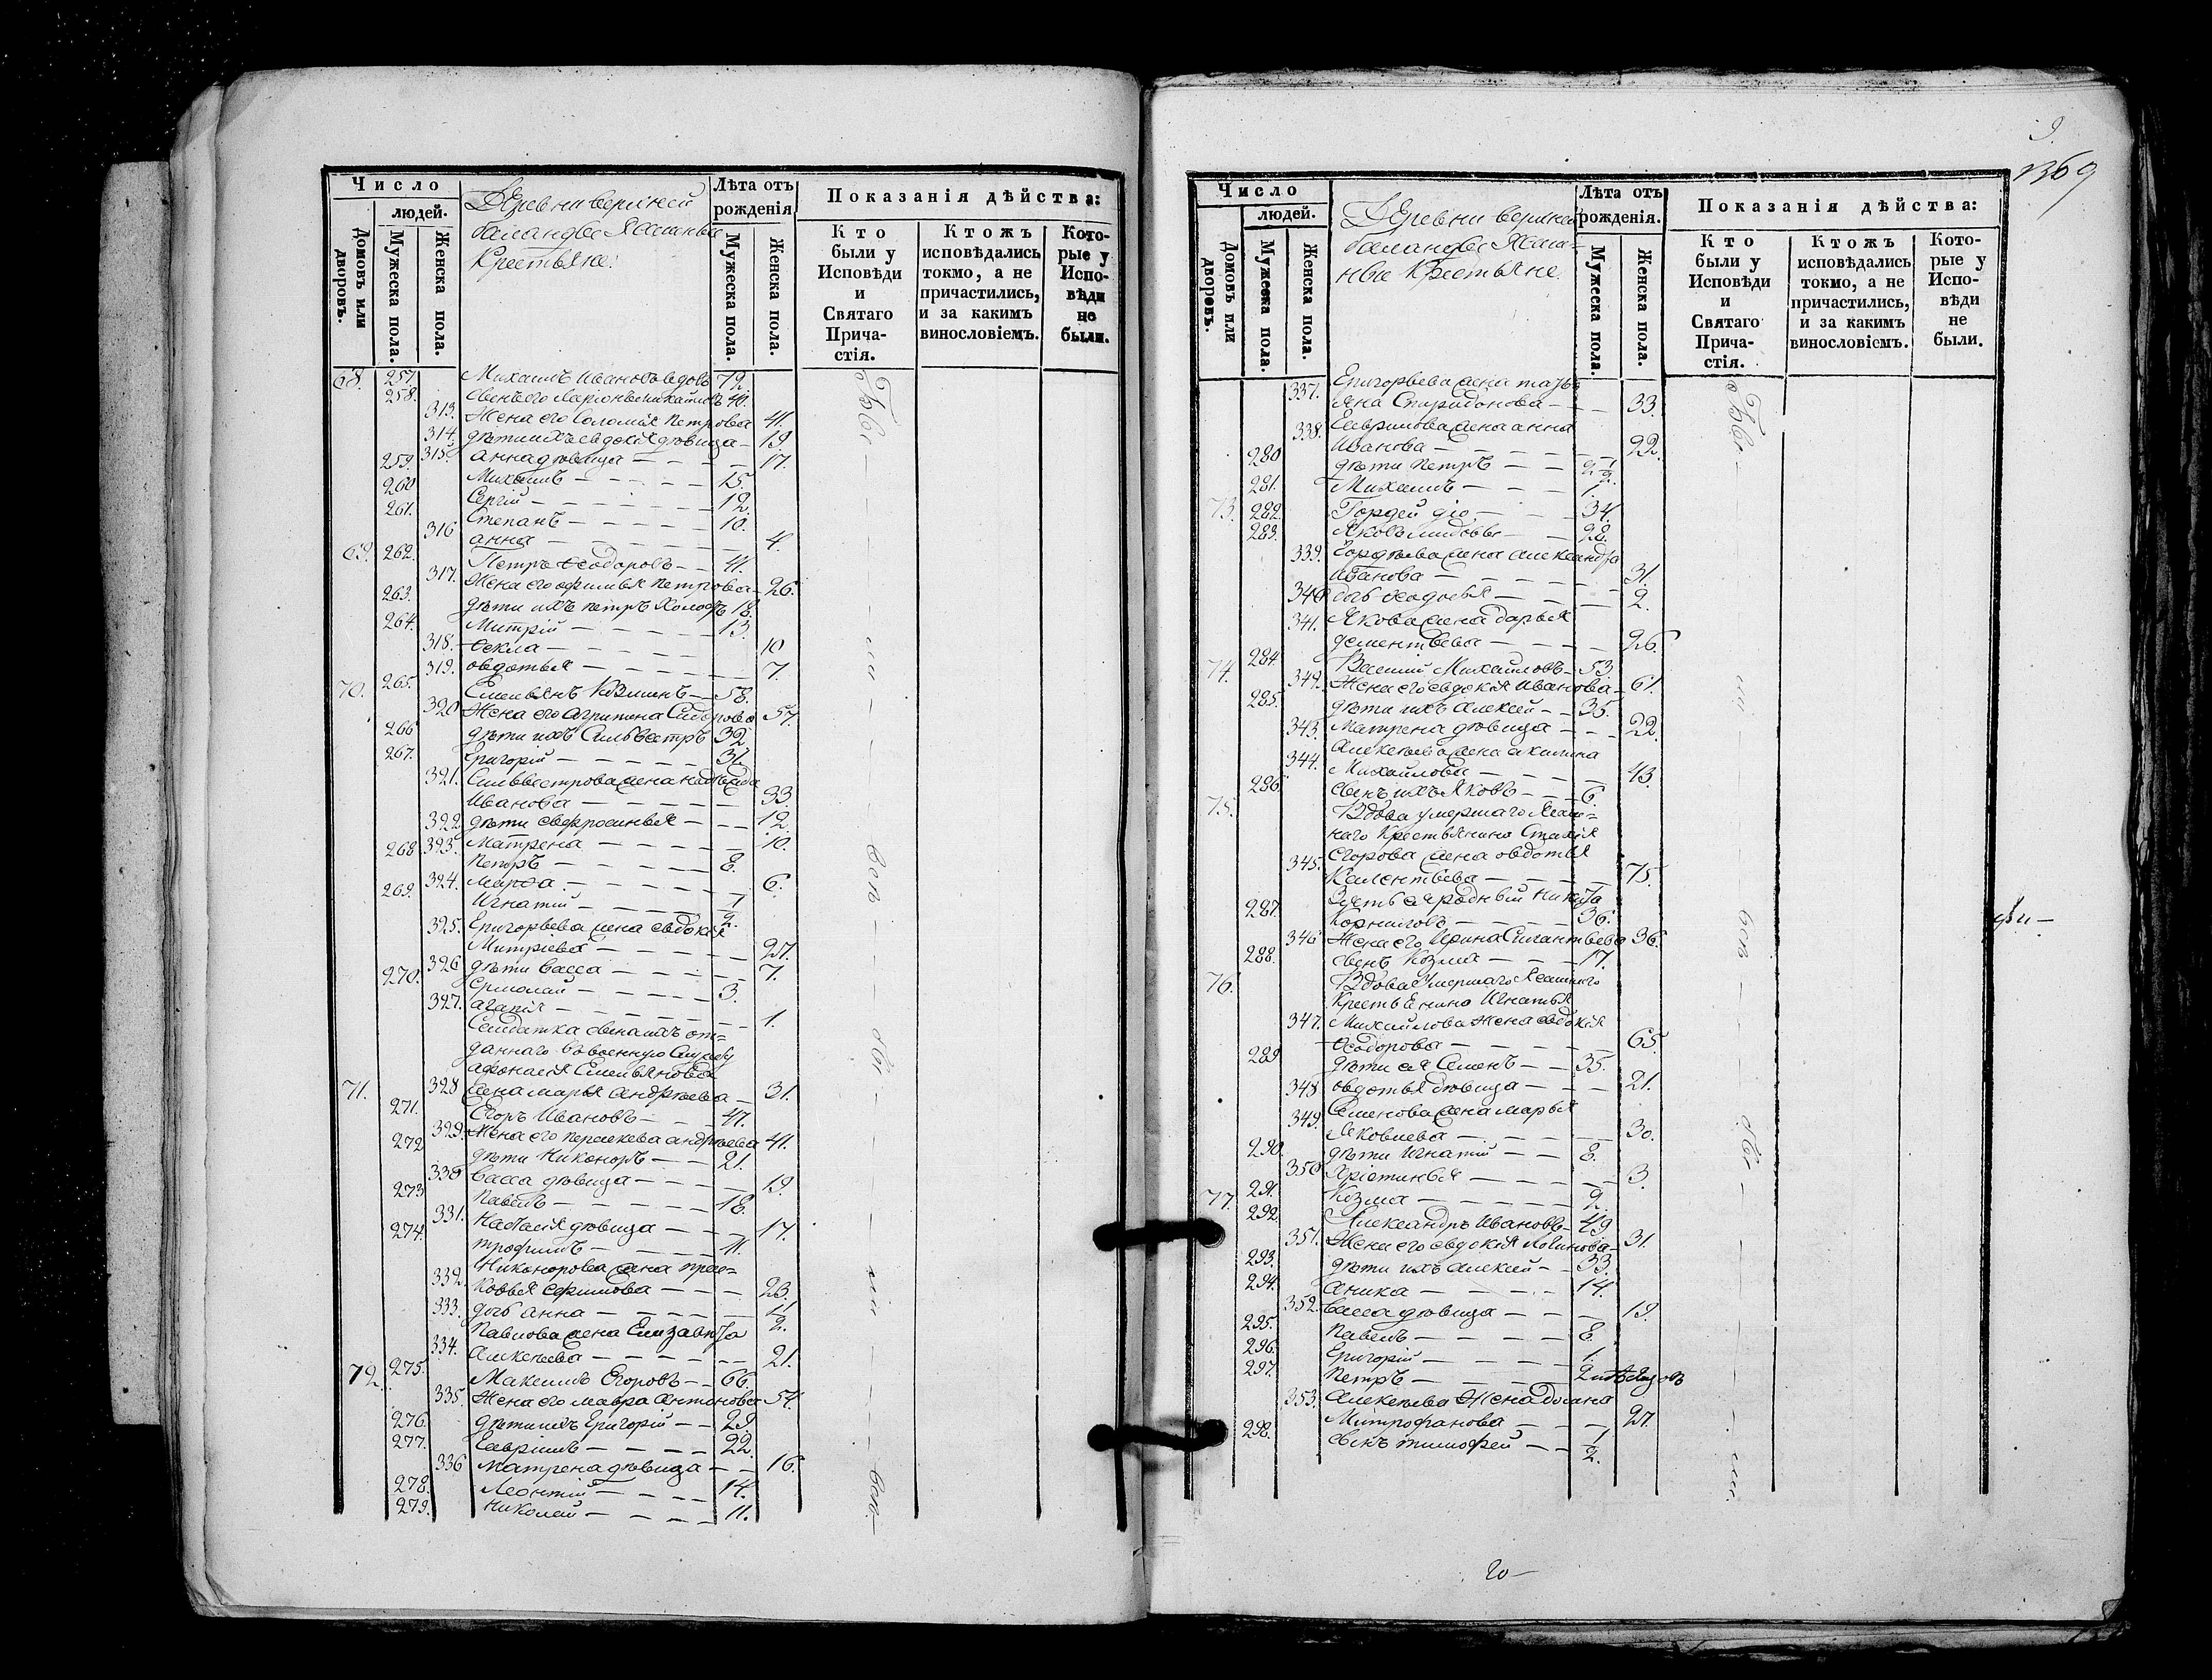 Число
людей.
Домовъ или дворовъ.
Мужеска пола.
Женска пола.
Деревни верхней
баландвы Ясашные
Крестьяне:
Лѣта отъ
рожденія
Мужеска пола.
Женска пола.
Показанія дѣйства:
Кто
были у
Исповѣди
и
Святаго
Прича-
стія.
Ктожъ
исповѣдались
токмо, а не
причастились,
и за какимъ
винословіемъ.
Кото-
рые у
Испо-
вѣди
не
были.
68. 257. Михаилъ Ивановъ вдовъ 72.
258. сынъ его Ларіонъ Михайловъ 40.
313. Жена его Соломія Петрова 41.
314. дѣти ихъ евдокія дѣвица 19.
315. анна дѣвица 17.
259. Михаилъ 15.
260. Сергій 12.
261. Степанъ 10.
316 анна 4.
69. 262. Петръ Ѳеодоровъ 41.
317. Жена его офимья Петрова 26.
263. дѣти ихъ петръ холостъ 18.
264. Митрій 13.
318. Ѳекла 10
319. овдотья 7.
70. 265. Емельянъ Козминъ 58.
320 Жена его агрипена Сидорова 57.
266 дѣти ихъ Сильвестръ 32
267. Григорій 31.
321. Сильвестрова жена надежда
Иванова 33.
322 дѣти ефросинья 12.
323. Матрена 10.
268 Петръ 8.
324. марѳа 6.
269. Игнатій 1/2.
325. Григорьева жена евдокія
Митріева 27.
326 дѣти васса 7.
270. Ермолай 3.
327. агапія 1.
Салдатка сына ихъ от=
даннаго въ военную службу
афонасія Емельянова
328 жена марья андрѣева 31.
71. 271. Егоръ Ивановъ 47.
329. Жена его параскева андрѣева 41.
272 дѣти Никоноръ 21.
330 васса дѣвица 19.
273 Павелъ 18.
331. настасія дѣвица 17.
274. трофимъ 11.
Никонорова жена прас=
332. ковья ефимова 23.
333. дочь анна 1/2.
Павлова жена Елизавета
334. Алексѣева 21.
72 275. Максимъ Егоровъ 66.
335. Жена его мавра антонова 54.
276. дѣти ихъ Григорій 29.
277. Гаврилъ 22.
336 матрена дѣвица 16.
278. Леонтій 14.
279. николай 11.
369
Число
людей.
Домовъ или дворовъ.
Мужеска пола
Женска пола.
Деревни верхней
баландвы Ясаш=
ные Крестьяне
Лѣта отъ
рожденія.
Мужеска пола.
Женска пола.
Показанія дѣйства:
Кто
были у
Исповѣди
и
Святаго
Прича-
стія.
Ктожъ
исповѣдались
токмо, а не
причастились,
и за какимъ
винословіемъ.
Кото-
рые у
Испо-
вѣди
не
были.
337. Григорьева жена татья
яна Спиридонова 33.
338. Гаврилова жена анна
Иванова 22.
280 дѣти петръ 2 1/2.
281. Михаилъ 1.
73. 282. Гордей 34.
283. Яковъ 28.
339. Гордѣева жена александра
Иванова 31.
340 дочь Ѳеодосья 2.
341. Якова жена дарья
дементьева 26.
74. 284 Василій Михайловъ 53.
342. Жена его евдокія Иванова 61.
285. дѣти ихъ алексей 35.
343. матрена дѣвица 22.
алексѣева жена акилина
344. Михайлова 43.
286 сынъ ихъ Яковъ 6.
75. Вдова умершаго Ясаш=
наго Крестьянина
Егорова жена овдотья
345. 75.
287. Зять ея родный никита
Корниловъ 36.
346 Жена его Ирина 36.
288. сынъ Козма 17.
76. Вдова умершаго Ясашнаго
Крестьянина Игнатья
347. Михайлова жена евдокія
Ѳеодорова 65.
289 дѣти ея Семенъ 35.
348 овдотья дѣвица 21.
349. Семенова жена марья
Яковлева 30.
290. дѣти Игнатій 8.
350 Христинья 3.
291. Козма 2.
77. 292. Александръ Ивановъ 49
351. Жена его евдокія Логинова 31.
293. дѣти ихъ алексей 33.
294. аника 14.
352. васса дѣвица 19.
295. павелъ 8.
296. Григорій 1.
297. петръ 2 мѣсяцовъ
353. алексѣева Жена
Митрофанова 27.
298. сынъ тимофей 1/2.
20